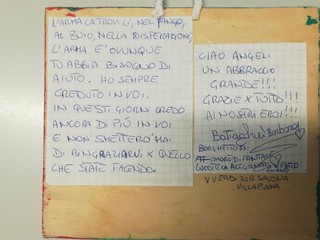 L'ARMA LA TROVI LÌ, NEL FANGO,
AL BUIO, NELLA DISPERAZIONE,
L'ARMA È OVUNQUE
TU ABBIA BISOGNO DI
AIUTO. HO SEMPRE
CREDUTO IN VOI.
IN QUESTI GIORNI CREDO
ANCORA DI PIÙ IN VOI
E NON SMETTERÒ MAI
DI RINGRAZIARVI X QUELLO
CHE STATE FACENDO.
CIAO ANGELI
UN ABBRACCIO
GRANDE!!!
GRAZIE X TUTTO!!!
AI NOSTRI EROI!!
Barbara
BORGHETTO
CUORI DI FANTASIA
V. VERDI 20R SAVONA
VILLAPIANA